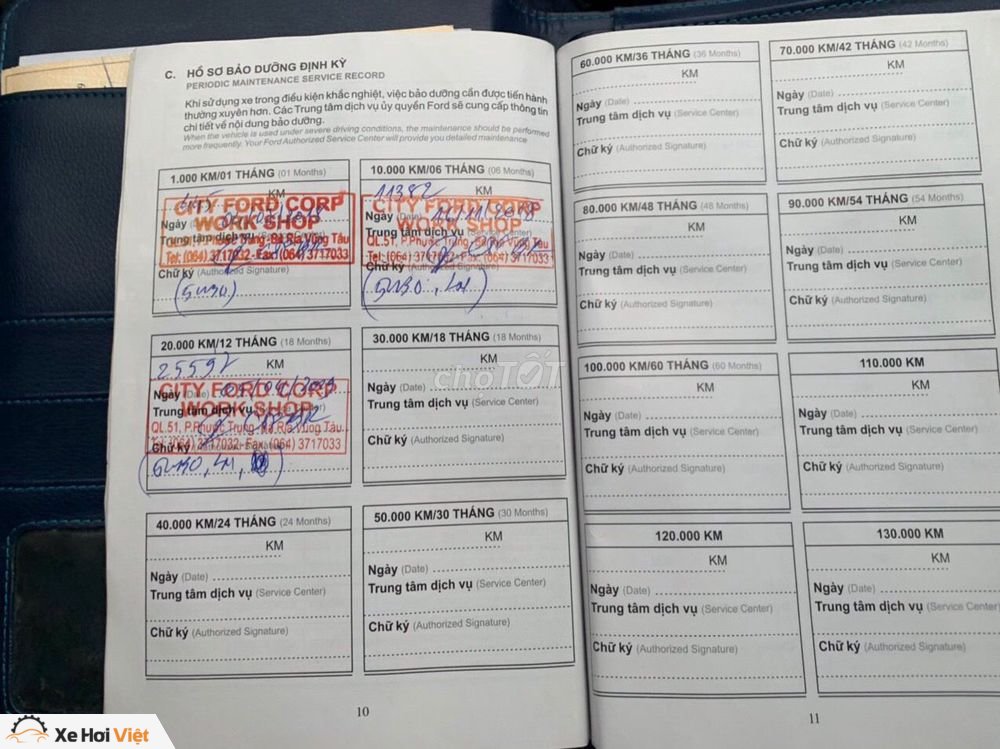 C. HỒ SƠ BẢO DƯỠNG ĐỊNH KỲ
PERIODIC MAINTENANCE SERVICE RECORD
Khi sử dụng xe trong điều kiện khắc nghiệt, việc bảo dưỡng cần được tiến hành
thường xuyên hơn. Các Trung tâm dịch vụ ủy quyền Ford sẽ cung cấp thông tin
chi tiết về nội dung bảo dưỡng.
When the vehicle is used under severe driving conditions, the maintenance should be performed
more frequently. Your Ford Authorized Service Center will provide you detailed maintenance
1.000 KM/01 THÁNG (01 Months)
KM
CITY FORD CORP
Ngày
WORK SHOP
Trung tâm dịch vụ
Tel: (064) 3717032-Fax: (064) 3717033
Chữ ký (Authorized Signature)
(5W30)
10.000 KM/06 THÁNG (06 Months)
11382 KM
CITY FORD CORP
Ngày 14/11/2018
WORK SHOP
Trung tâm dịch vụ
QL.51, P.Phước Trung, Bà Rịa Vũng Tàu
Tel: (064) 3717032-Fax: (064) 3717033
Chữ ký (Authorized Signature)
(5W30, LM)
20.000 KM/12 THÁNG (18 Months)
25592 KM
Ngày
CITY FORD CORP
Trung tâm dịch vụ
WORK SHOP
QL.51, P.Phước Trung, Bà Rịa Vũng Tàu
Tel: (064) 3717032-Fax: (064) 3717033
Chữ ký
(5W30, LM,
30.000 KM/18 THÁNG (18 Months)
KM
Ngày (Date)
Trung tâm dịch vụ (Service Center)
Chữ ký (Authorized Signature)
40.000 KM/24 THÁNG (24 Months)
KM
Ngày (Date)
Trung tâm dịch vụ (Service Center)
Chữ ký (Authorized Signature)
50.000 KM/30 THÁNG (30 Months)
KM
Ngày (Date)
Trung tâm dịch vụ (Service Center)
Chữ ký (Authorized Signature)
10
60.000 KM/36 THÁNG (36 Months)
KM
Ngày (Date)
Trung tâm dịch vụ (Service Center)
Chữ ký (Authorized Signature)
70.000 KM/42 THÁNG (42 Months)
KM
Ngày (Date)
Trung tâm dịch vụ (Service Center)
Chữ ký (Authorized Signature)
80.000 KM/48 THÁNG (48 Months)
KM
Ngày (Date)
Trung tâm dịch vụ (Service Center)
Chữ ký (Authorized Signature)
90.000 KM/54 THÁNG (54 Months)
KM
Ngày (Date)
Trung tâm dịch vụ (Service Center)
Chữ ký (Authorized Signature)
100.000 KM/60 THÁNG (60 Months)
KM
Ngày (Date)
Trung tâm dịch vụ (Service Center)
Chữ ký (Authorized Signature)
110.000 KM
KM
Ngày (Date)
Trung tâm dịch vụ (Service Center)
Chữ ký (Authorized Signature)
120.000 KM
KM
Ngày (Date)
Trung tâm dịch vụ (Service Center)
Chữ ký (Authorized Signature)
130.000 KM
KM
Ngày (Date)
Trung tâm dịch vụ (Service Center)
Chữ ký (Authorized Signature)
11
choTỐT
Xe Hơi Việt